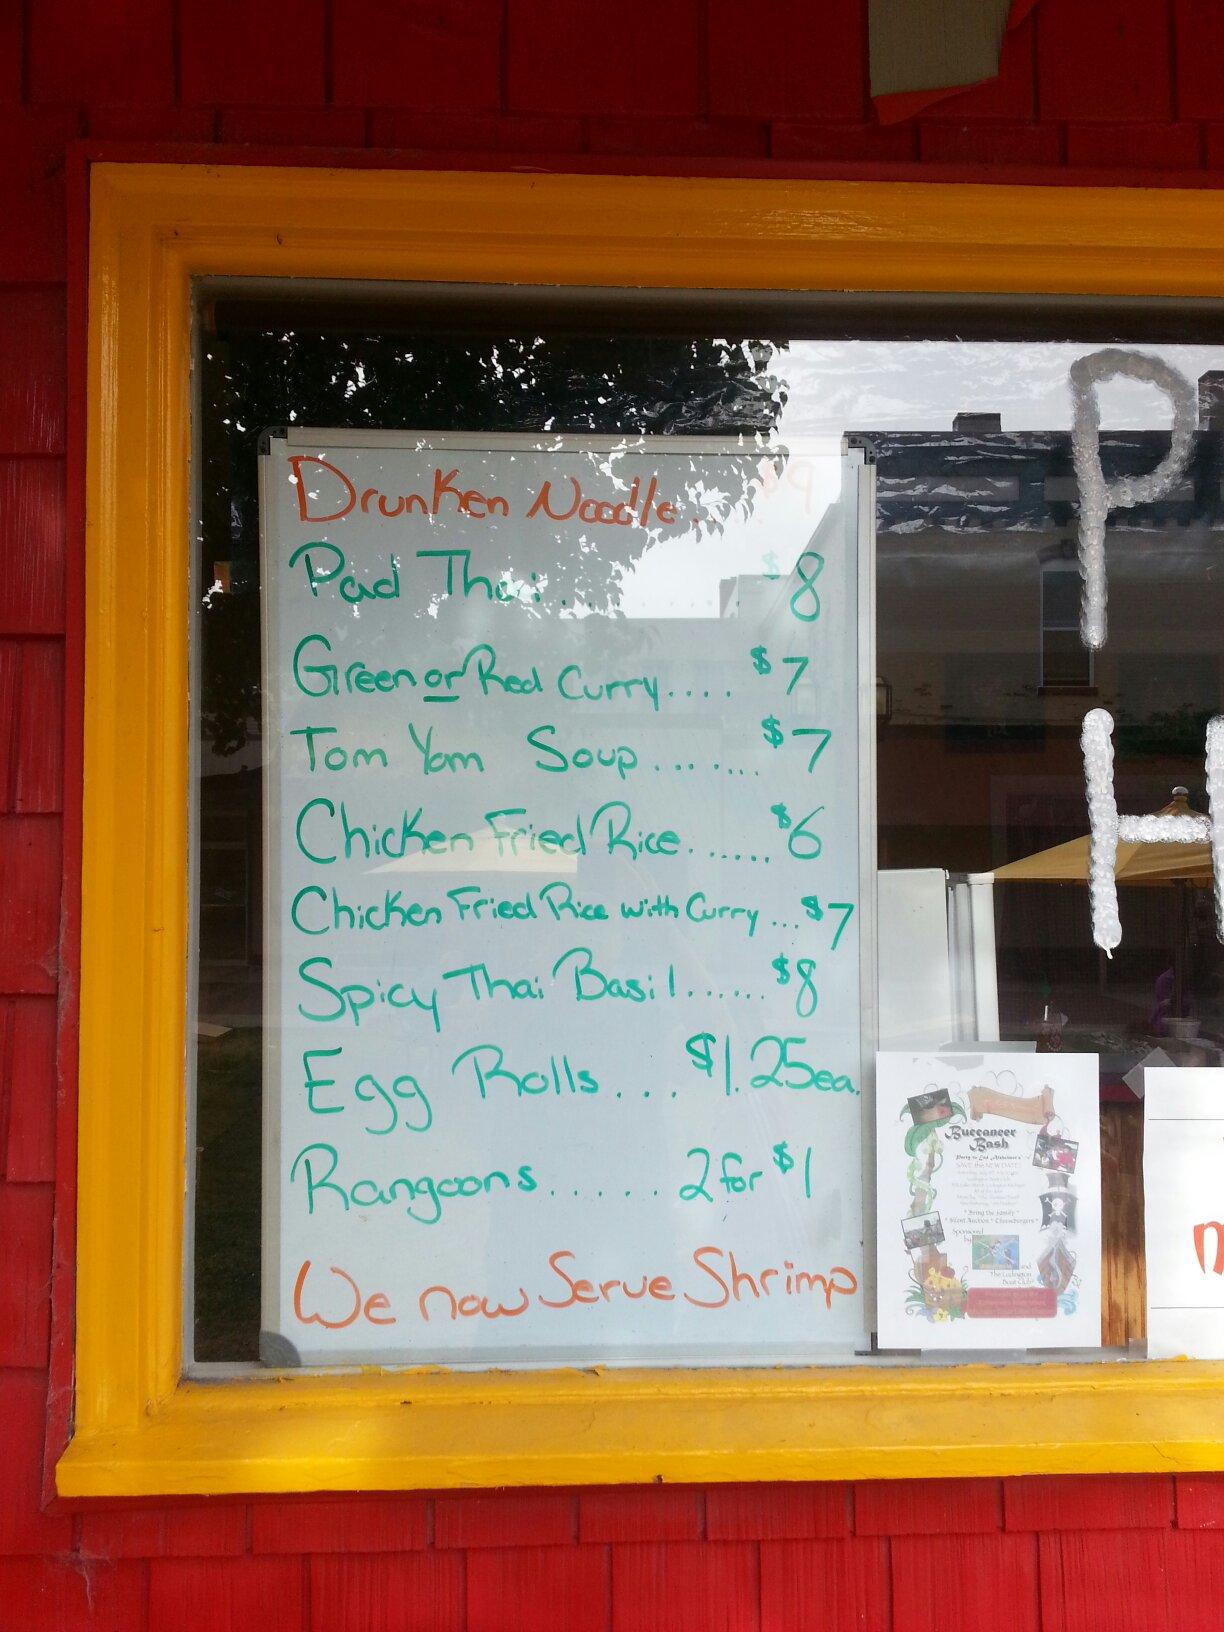 Drunken Noodle..... $9
Pad Thai............ $8
Green or Red Curry.... $7
Tom Yom Soup....... $7
Chicken Fried Rice...... $6
Chicken Fried Rice with Curry... $7
Spicy Thai Basil...... $8
Egg Rolls... $1.25ea.
Rangoons...... 2 for $1
We now Serve Shrimp
P
H
Buccaneer
Bash
Party to End Alzheimer's
SAVE the NEW DATE!
"Bring the Family"
"Silent Auction * Cheeseburgers"
Sponsored
by
and
The Ludington
Boat Club